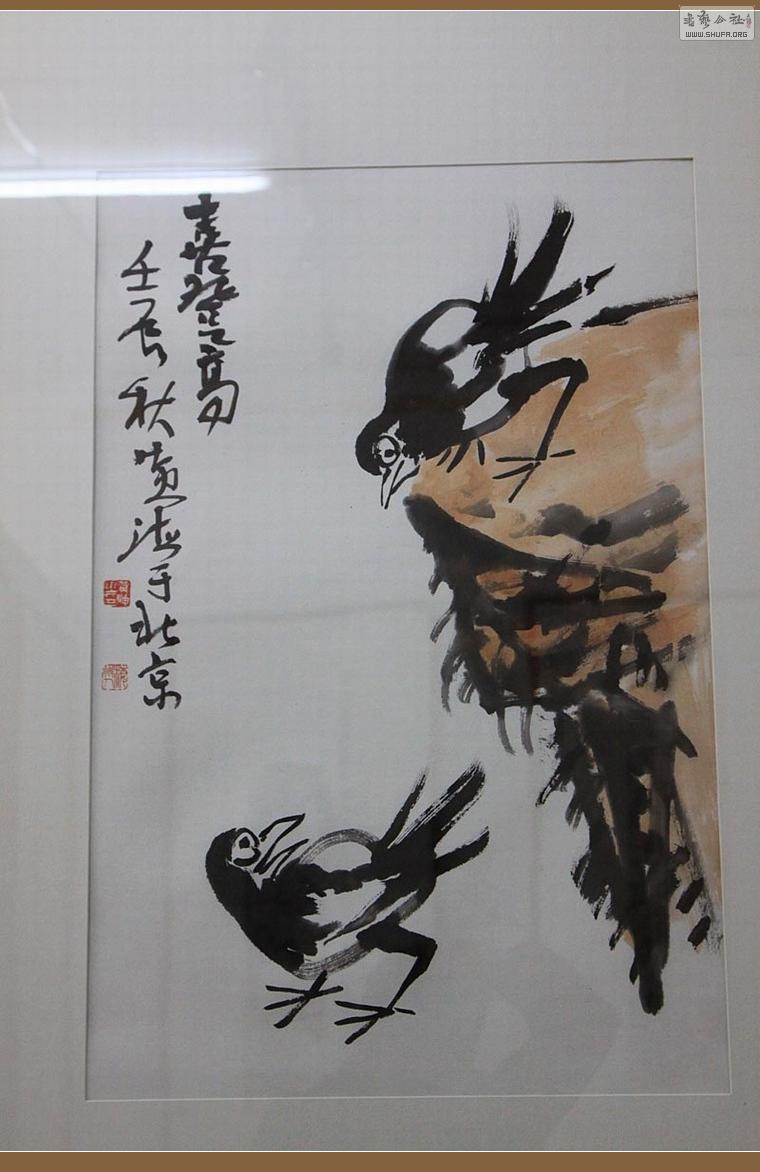 書藝公社
WWW.SHUFA.ORG
喜登高
壬辰秋黄德于北京